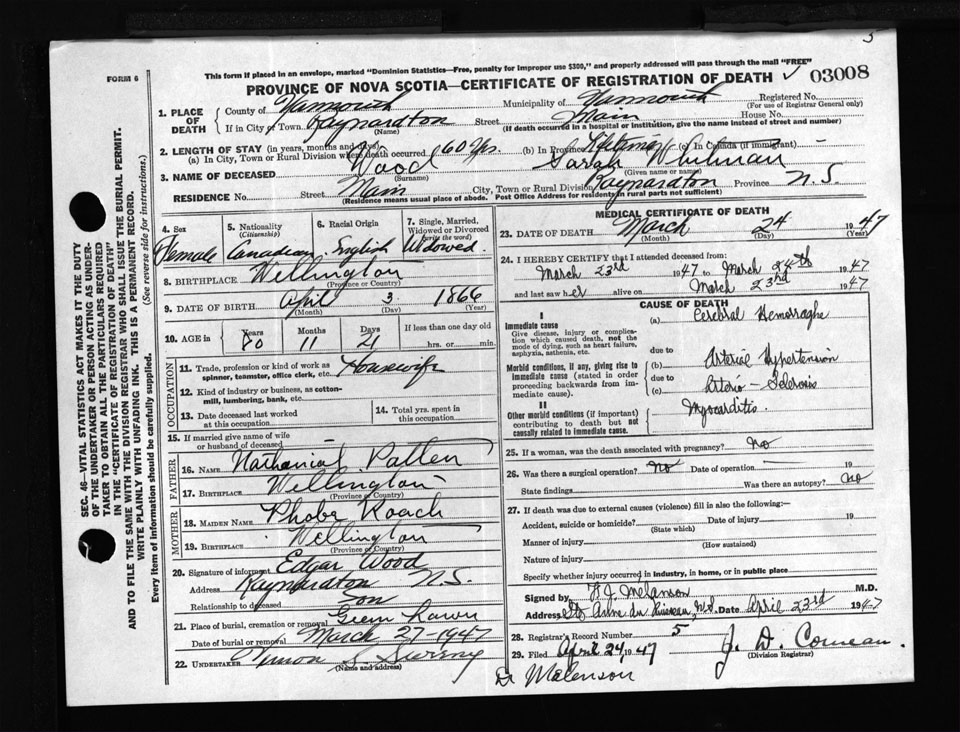 3
FORM 6
This form if placed in an envelope, marked "Dominion Statistics—Free, penalty for improper use $300," and properly addressed will pass through the mail "FREE"
PROVINCE OF NOVA SCOTIA—CERTIFICATE OF REGISTRATION OF DEATH ✓ 03008
SEC. 46—VITAL STATISTICS ACT MAKES IT THE DUTY
OF THE UNDERTAKER OR PERSON ACTING AS UNDER-
TAKER TO OBTAIN ALL THE PARTICULARS REQUIRED
IN THE "CERTIFICATE OF REGISTRATION OF DEATH"
AND TO FILE THE SAME WITH THE DIVISION REGISTRAR WHO SHALL ISSUE THE BURIAL PERMIT.
WRITE PLAINLY WITH UNFADING INK. THIS IS A PERMANENT RECORD.
Every item of information should be carefully supplied. (See reverse side for instructions.)
1. PLACE OF DEATH County of Yarmouth Municipality of Yarmouth Registered No.
(For use of Registrar General only)
If in City or Town Raynardton Street Main House No.
(Name) (If death occurred in a hospital or institution, give the name instead of street and number)
2. LENGTH OF STAY (in years, months and days)
(a) In City, Town or Rural Division where death occurred 60 Yrs. (b) In Province Lifetime (c) In Canada (if immigrant) —
3. NAME OF DECEASED Wood Sarah Whitman
(Surname) (Given name or names)
RESIDENCE No. Street Main City, Town or Rural Division Raynardton Province N.S.
(Residence means usual place of abode. Post Office Address for residents in rural parts not sufficient)
4. Sex 5. Nationality (Citizenship) 6. Racial Origin 7. Single, Married, Widowed or Divorced (write the word)
Female Canadian English Widowed
8. BIRTHPLACE Wellington
(Province or Country)
9. DATE OF BIRTH April 3 1866
(Month) (Day) (Year)
10. AGE in Years Months Days If less than one day
80 11 21 hrs. or min.
OCCUPATION
11. Trade, profession or kind of work as spinner, teamster, office clerk, etc. Housewife
12. Kind of industry or business, as cotton-mill, lumbering, bank, etc.
13. Date deceased last worked at this occupation
14. Total yrs. spent in this occupation
15. If married give name of wife or husband of deceased
FATHER
16. NAME Nathanial Patten
17. BIRTHPLACE Wellington
(Province or Country)
MOTHER
18. MAIDEN NAME Phobe Roach
19. BIRTHPLACE Wellington
(Province or Country)
20. Signature of informant Edgar Wood
Address Raynardton N.S.
Relationship to deceased Son
21. Place of burial, cremation or removal Green Lawn
Date of burial or removal March 27-1947
22. UNDERTAKER Vernon S. Sweeny
(Name and address)
MEDICAL CERTIFICATE OF DEATH
23. DATE OF DEATH March 24 1947
(Month) (Day) (Year)
24. I HEREBY CERTIFY that I attended deceased from:
March 23rd 1947 to March 24th 1947
and last saw her alive on March 23rd 1947
CAUSE OF DEATH
I
Immediate cause (a) Cerebral Hemorraghe
Give disease, injury or complication which caused death, not the mode of dying, such as heart failure, asphyxia, asthenia, etc.
due to
Morbid conditions, if any, giving rise to immediate cause (stated in order proceeding backwards from immediate cause). (b) Arterial Hypertension
due to
(c) Arterio-Sclerosis
II
Other morbid conditions (if important) contributing to death but not causally related to immediate cause. Myocarditis.
25. If a woman, was the death associated with pregnancy? No
26. Was there a surgical operation? No Date of operation — 19
State findings Was there an autopsy? No
27. If death was due to external causes (violence) fill in also the following:—
Accident, suicide or homicide? Date of injury 19
(State which)
Manner of injury
(How sustained)
Nature of injury
Specify whether injury occurred in industry, in home, or in public place
Signed by H.J. Melanson M.D.
Address Ste Anne du Ruisseau, N.S. Date April 23rd 1947
28. Registrar's Record Number 5
29. Filed April 24, 1947 J. D. Comeau.
(Division Registrar)
Dr Melenson